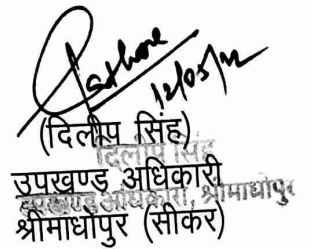 Rathore
12/05/22
(दिलीप सिंह)
दिलीप सिंह
उपखण्ड अधिकारी
उपखण्ड अधिकारी, श्रीमाधोपुर
श्रीमाधोपुर (सीकर)